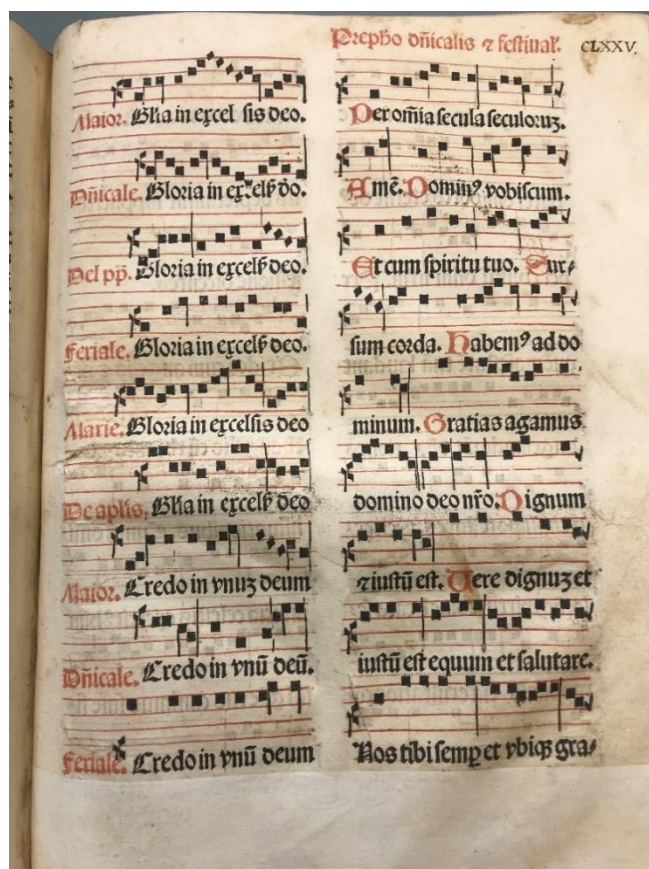 Maior. Glia in excel sis deo.
Dñicale. Gloria in excelſ do.
Del pp̄. Gloria in excelſ deo.
Feriale. Gloria in excelſ deo.
Marie. Gloria in excelsis deo
De aplis. Glia in excelſ deo
Maior. Credo in vnuꝫ deum
Dñicale. Credo in vnū deū.
Feriale. Credo in vnū deum
Prephō dñicalis ⁊ feſtiual. CLXXV.
Per om̄ia ſecula ſeculoruꝫ.
Amē. Domin⁹ vobiſcum.
Et cum ſpiritu tuo. Sur⸗
ſum corda. Habem⁹ ad do
minum. Gratias agamus
domino deo nr̄o. Dignum
⁊ iuſtū eſt. Uere dignuꝫ et
iuſtū eſt equum et ſalutare.
Nos tibi ſemꝑ et vbiqꝫ gra⸗